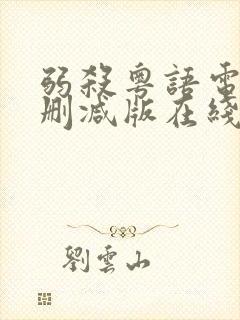 弱殺粵語電
刪減版在綫
劉雲山